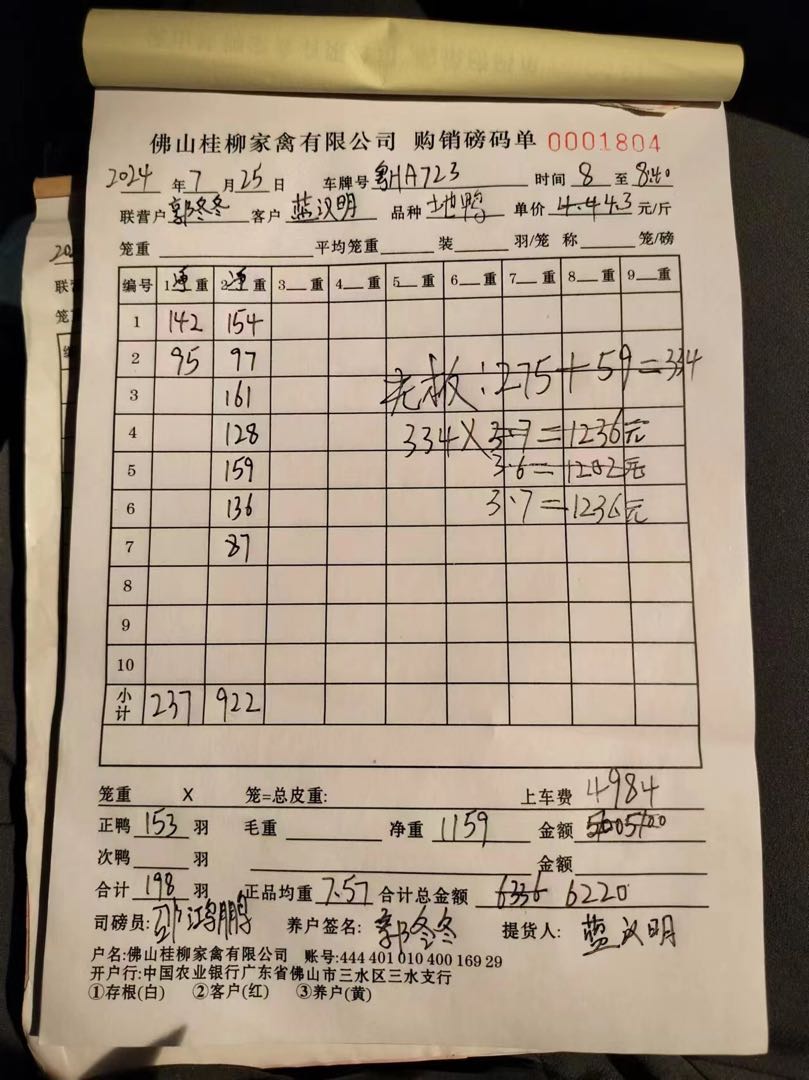 佛山桂柳家禽有限公司 购销磅码单 0001804
2024 年 7 月 25 日 车牌号 粤HA723 时间 8 至 8:40
联营户 郭冬冬 客户 蓝汉明 品种 土鸭 单价 元/斤
笼重 平均笼重 装 羽/笼 称 笼/磅
编号 1 重 2 重 3 重 4 重 5 重 6 重 7 重 8 重 9 重
1 142 154
2 95 97
3 161
老板:275+59=334
4 128
334×3.7=1236元
5 159
3.6=1202元
6 136
3.7=1236元
7 87
8
9
10
小计 237 922
笼重 X 笼=总皮重: 上车费 4984
正鸭 153 羽 毛重 净重 1159 金额
次鸭 羽 金额
合计 198 羽 正品均重 7.57 合计总金额 6336 6220
司磅员: 鹏 养户签名: 郭冬冬 提货人: 蓝汉明
户名:佛山桂柳家禽有限公司 账号:444 401 010 400 169 29
开户行:中国农业银行广东省佛山市三水区三水支行
①存根(白) ②客户(红) ③养户(黄)